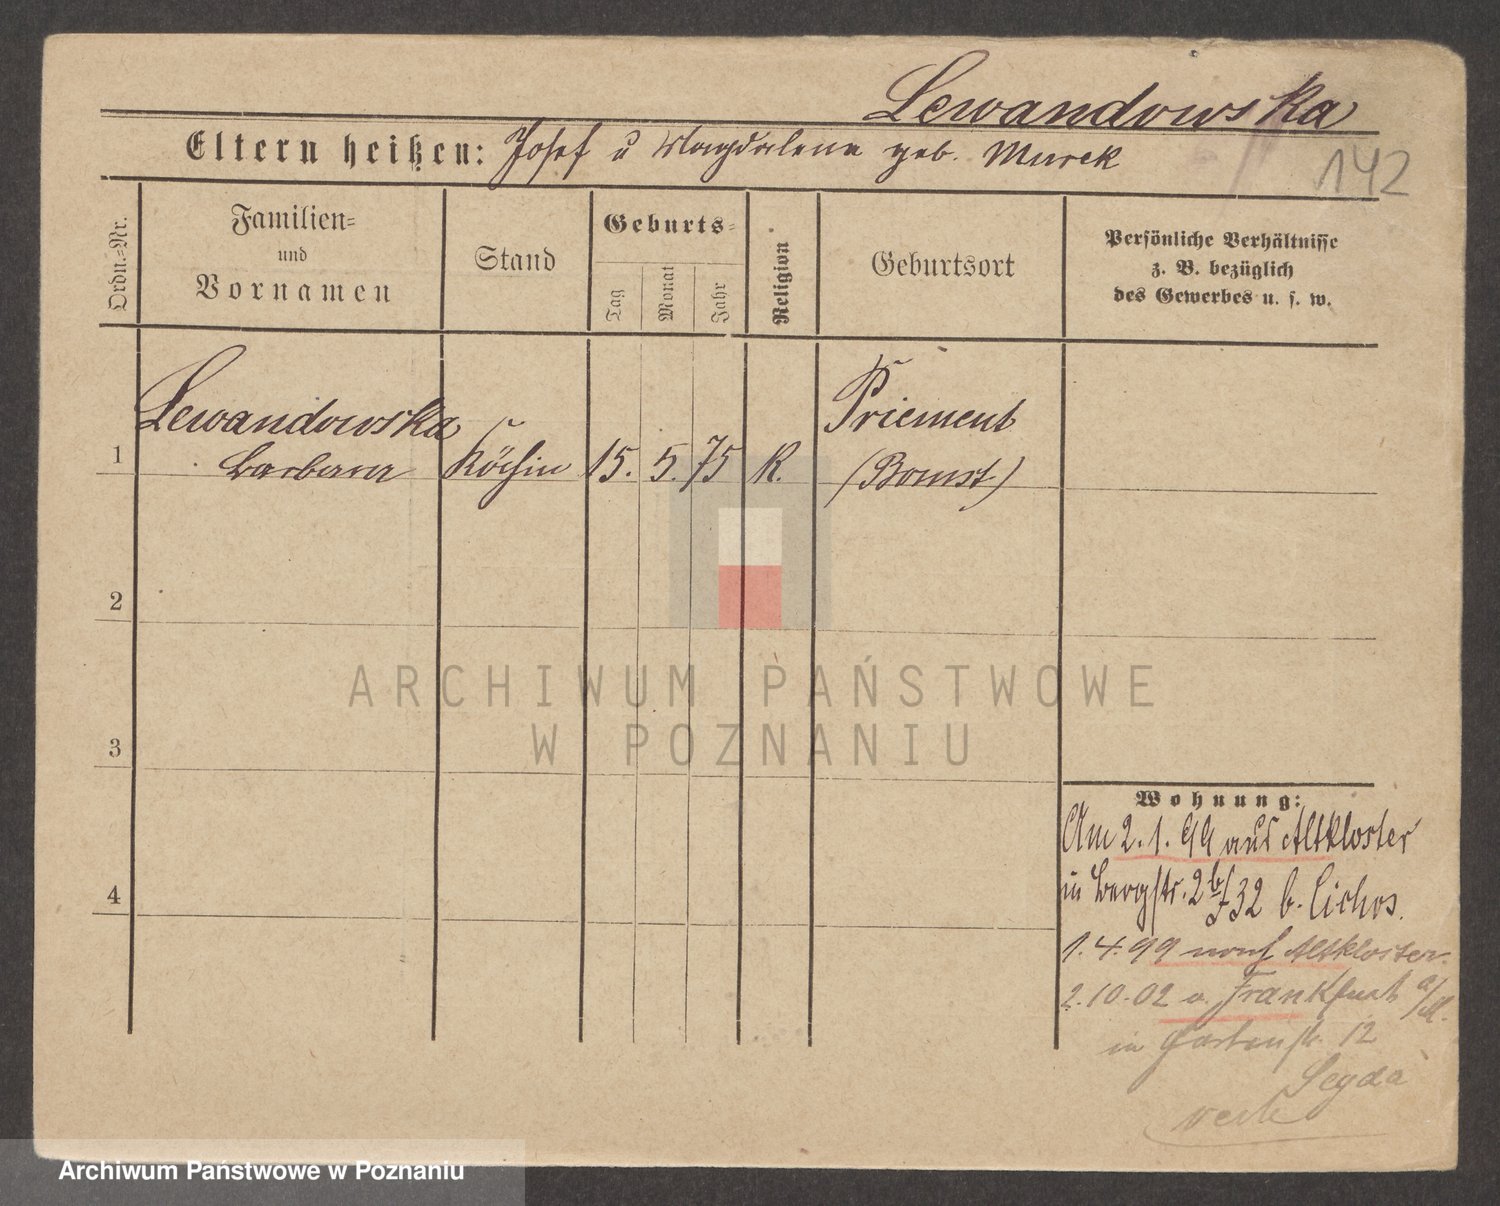 Lewandowska
Eltern heißen: Josef u Magdalena geb. Murek
142
Ordn.-Nr.
Familien-
und
Vornamen
Stand
Geburts-
Tag
Monat
Jahr
Religion
Geburtsort
Persönliche Verhältnisse
z. B. bezüglich
des Gewerbes u. s. w.
Lewandowska
1 Barbara Köchin 15. 5. 75 K. Priement
(Bomst)
2
ARCHIWUM PAŃSTWOWE
W POZNANIU
3
Wohnung:
Am 2.1.99 aus Altkloster
in Bergstr. 2b/32 b. Cichos.
4
1.4.99 nach Altkloster.
2.10.02 v. Frankfurt a/M.
in Gartenstr. 12
Seyda
Archiwum Państwowe w Poznaniu